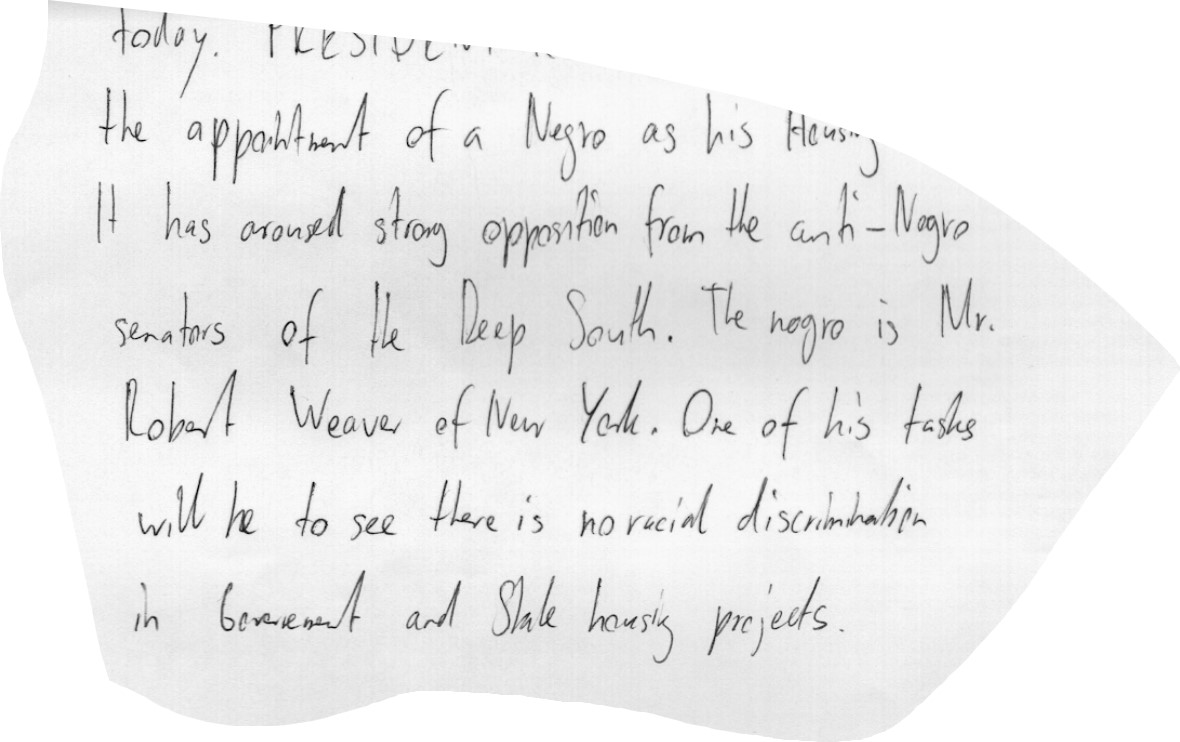 today. PRESIDENT
the appointment of a Negro as his Housing
It has aroused strong opposition from the anti-Negro
senators of the Deep South. The negro is Mr.
Robert Weaver of New York. One of his tasks
will be to see there is no racial discrimination
in Government and State housing projects.